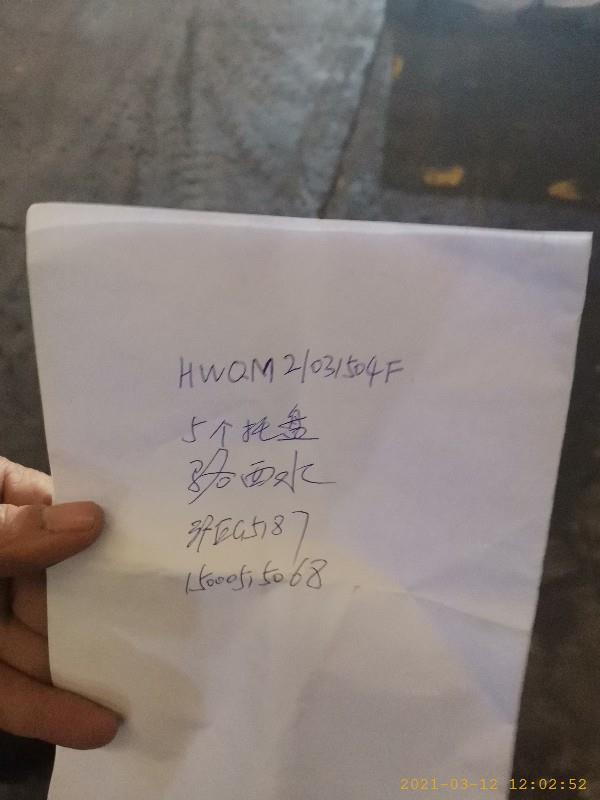 HWQM21031504F
5个托盘
骆西水
沪EG5187
15000515068
2021-03-12 12:02:52